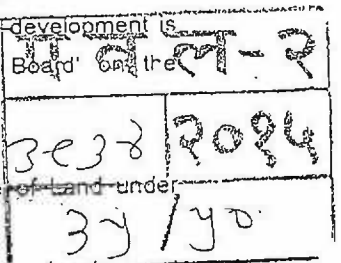 development is
Board' on the
प व ल - २
३९३४ २०१५
of Land under
३५/५०